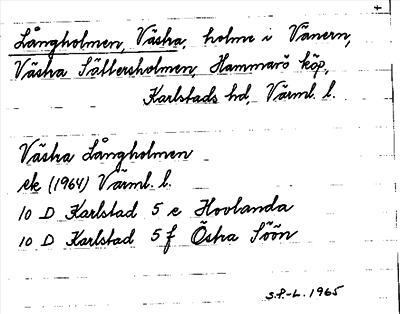 Långholmen, Västra, holme i Vänern,
Västra Sättersholmen, Hammarö köp,
Karlstads hd, Värml. l.
Västra Långholmen
ek (1964) Värml. l.
10 D Karlstad 5 e Hovlanda
10 D Karlstad 5 f Östra Söön
S.P.-L. 1965